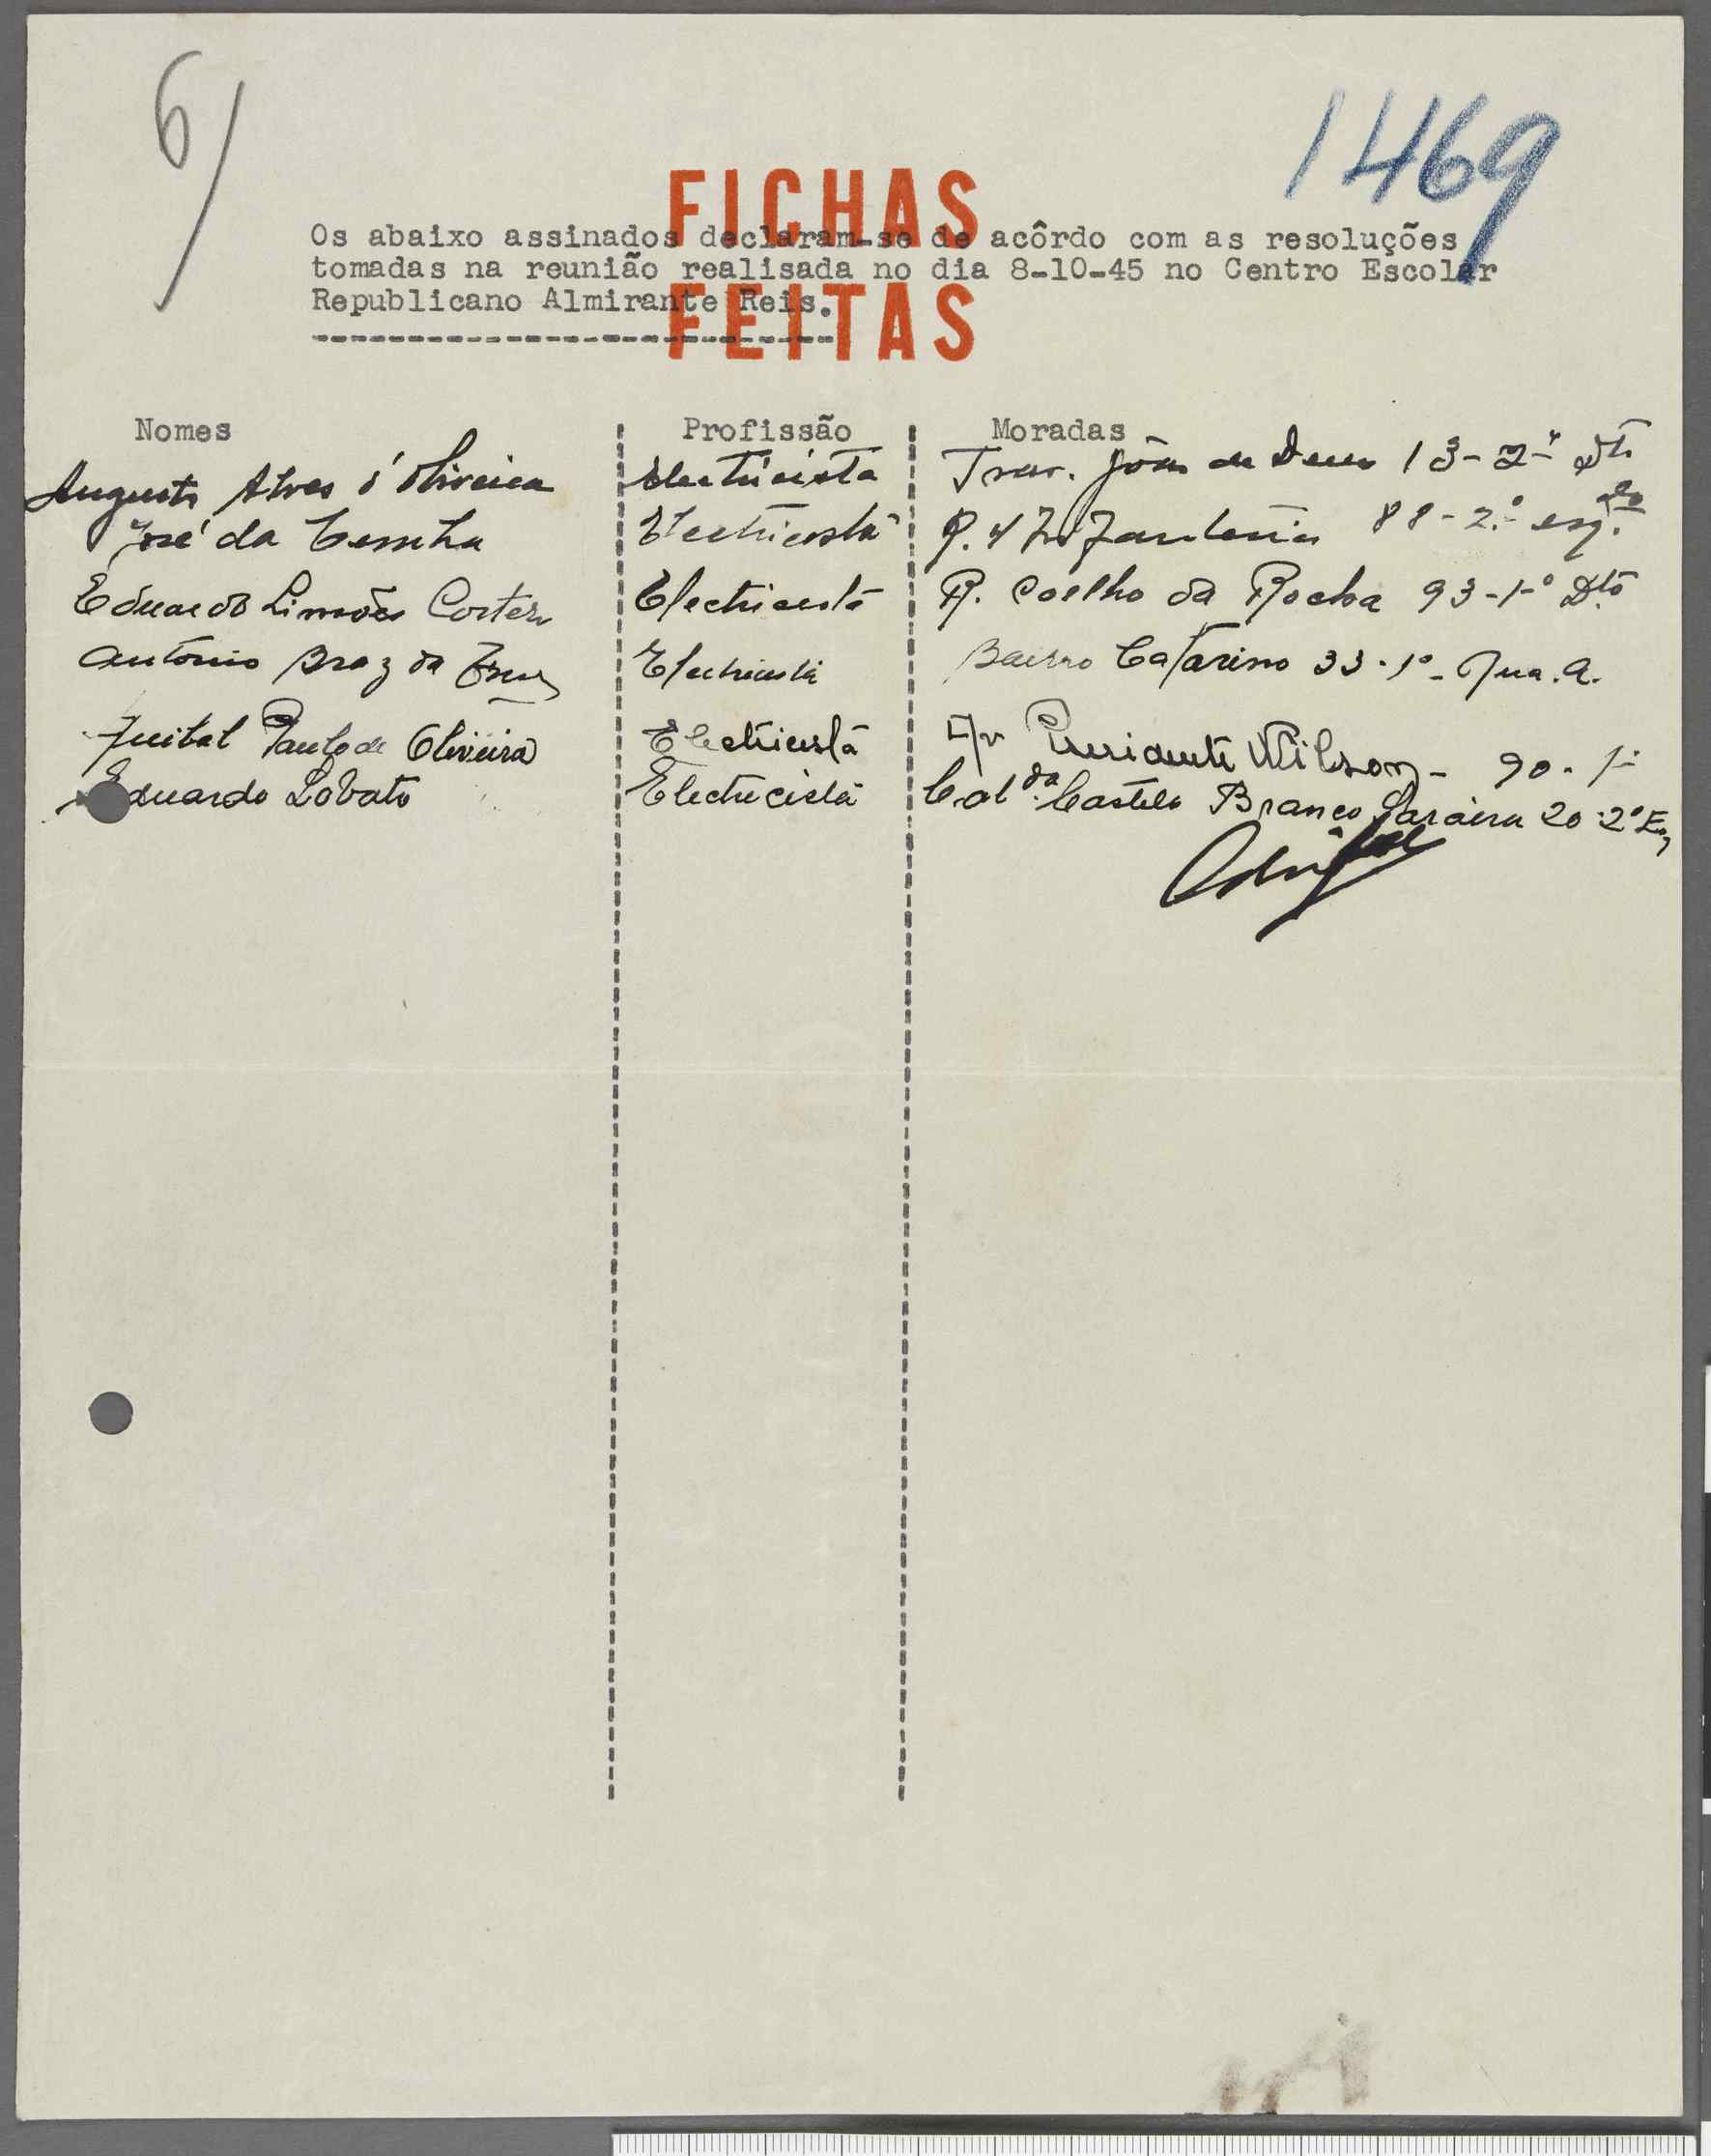 6/
1469
FICHAS
Os abaixo assinados declaram-se de acôrdo com as resoluções
tomadas na reunião realisada no dia 8-10-45 no Centro Escolar
Republicano Almirante Reis.
FEITAS
Nomes Profissão Moradas
Augusto Alves d'Oliveira Electricista Trav. João de Deus 13-2º Dtº
José da Cunha Electricista R. 4 Infantaria 88-2.º esq.
Eduardo Simões Cortez Electricista R. Coelho da Rocha 93-1º Dtº
António Braz da Electricista Bairro Catarino 33-1º - Rua. A.
Paulo de Oliveira Electricista Av Presidente Wilson - 90-1º
Eduardo Lobato Electricista Calçda Castelo Branco Saraiva 20-2º E